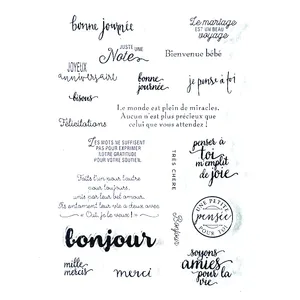 bonne journée
Le mariage
est un beau
voyage
juste une
Note
Bienvenue bébé
JOYEUX
anniversaire
bonne
journée
je pense à toi
bisous
Le monde est plein de miracles.
Aucun n'est plus précieux que
celui que vous attendez !
Félicitations
LES MOTS NE SUFFISENT
PAS POUR EXPRIMER
NOTRE GRATITUDE
POUR VOTRE SOUTIEN.
TRES CHERE
penser à
toi
m'emplit
de joie
Faits l'un pour l'autre
pour toujours,
unis par leur bel amour.
Ils entament leur vie à deux avec
« Oui, je le veux ! »
Bonjour
UNE PETITE
pensée
POUR TOI
bonjour
soyons
amies
pour la
vie
mille
mercis
merci